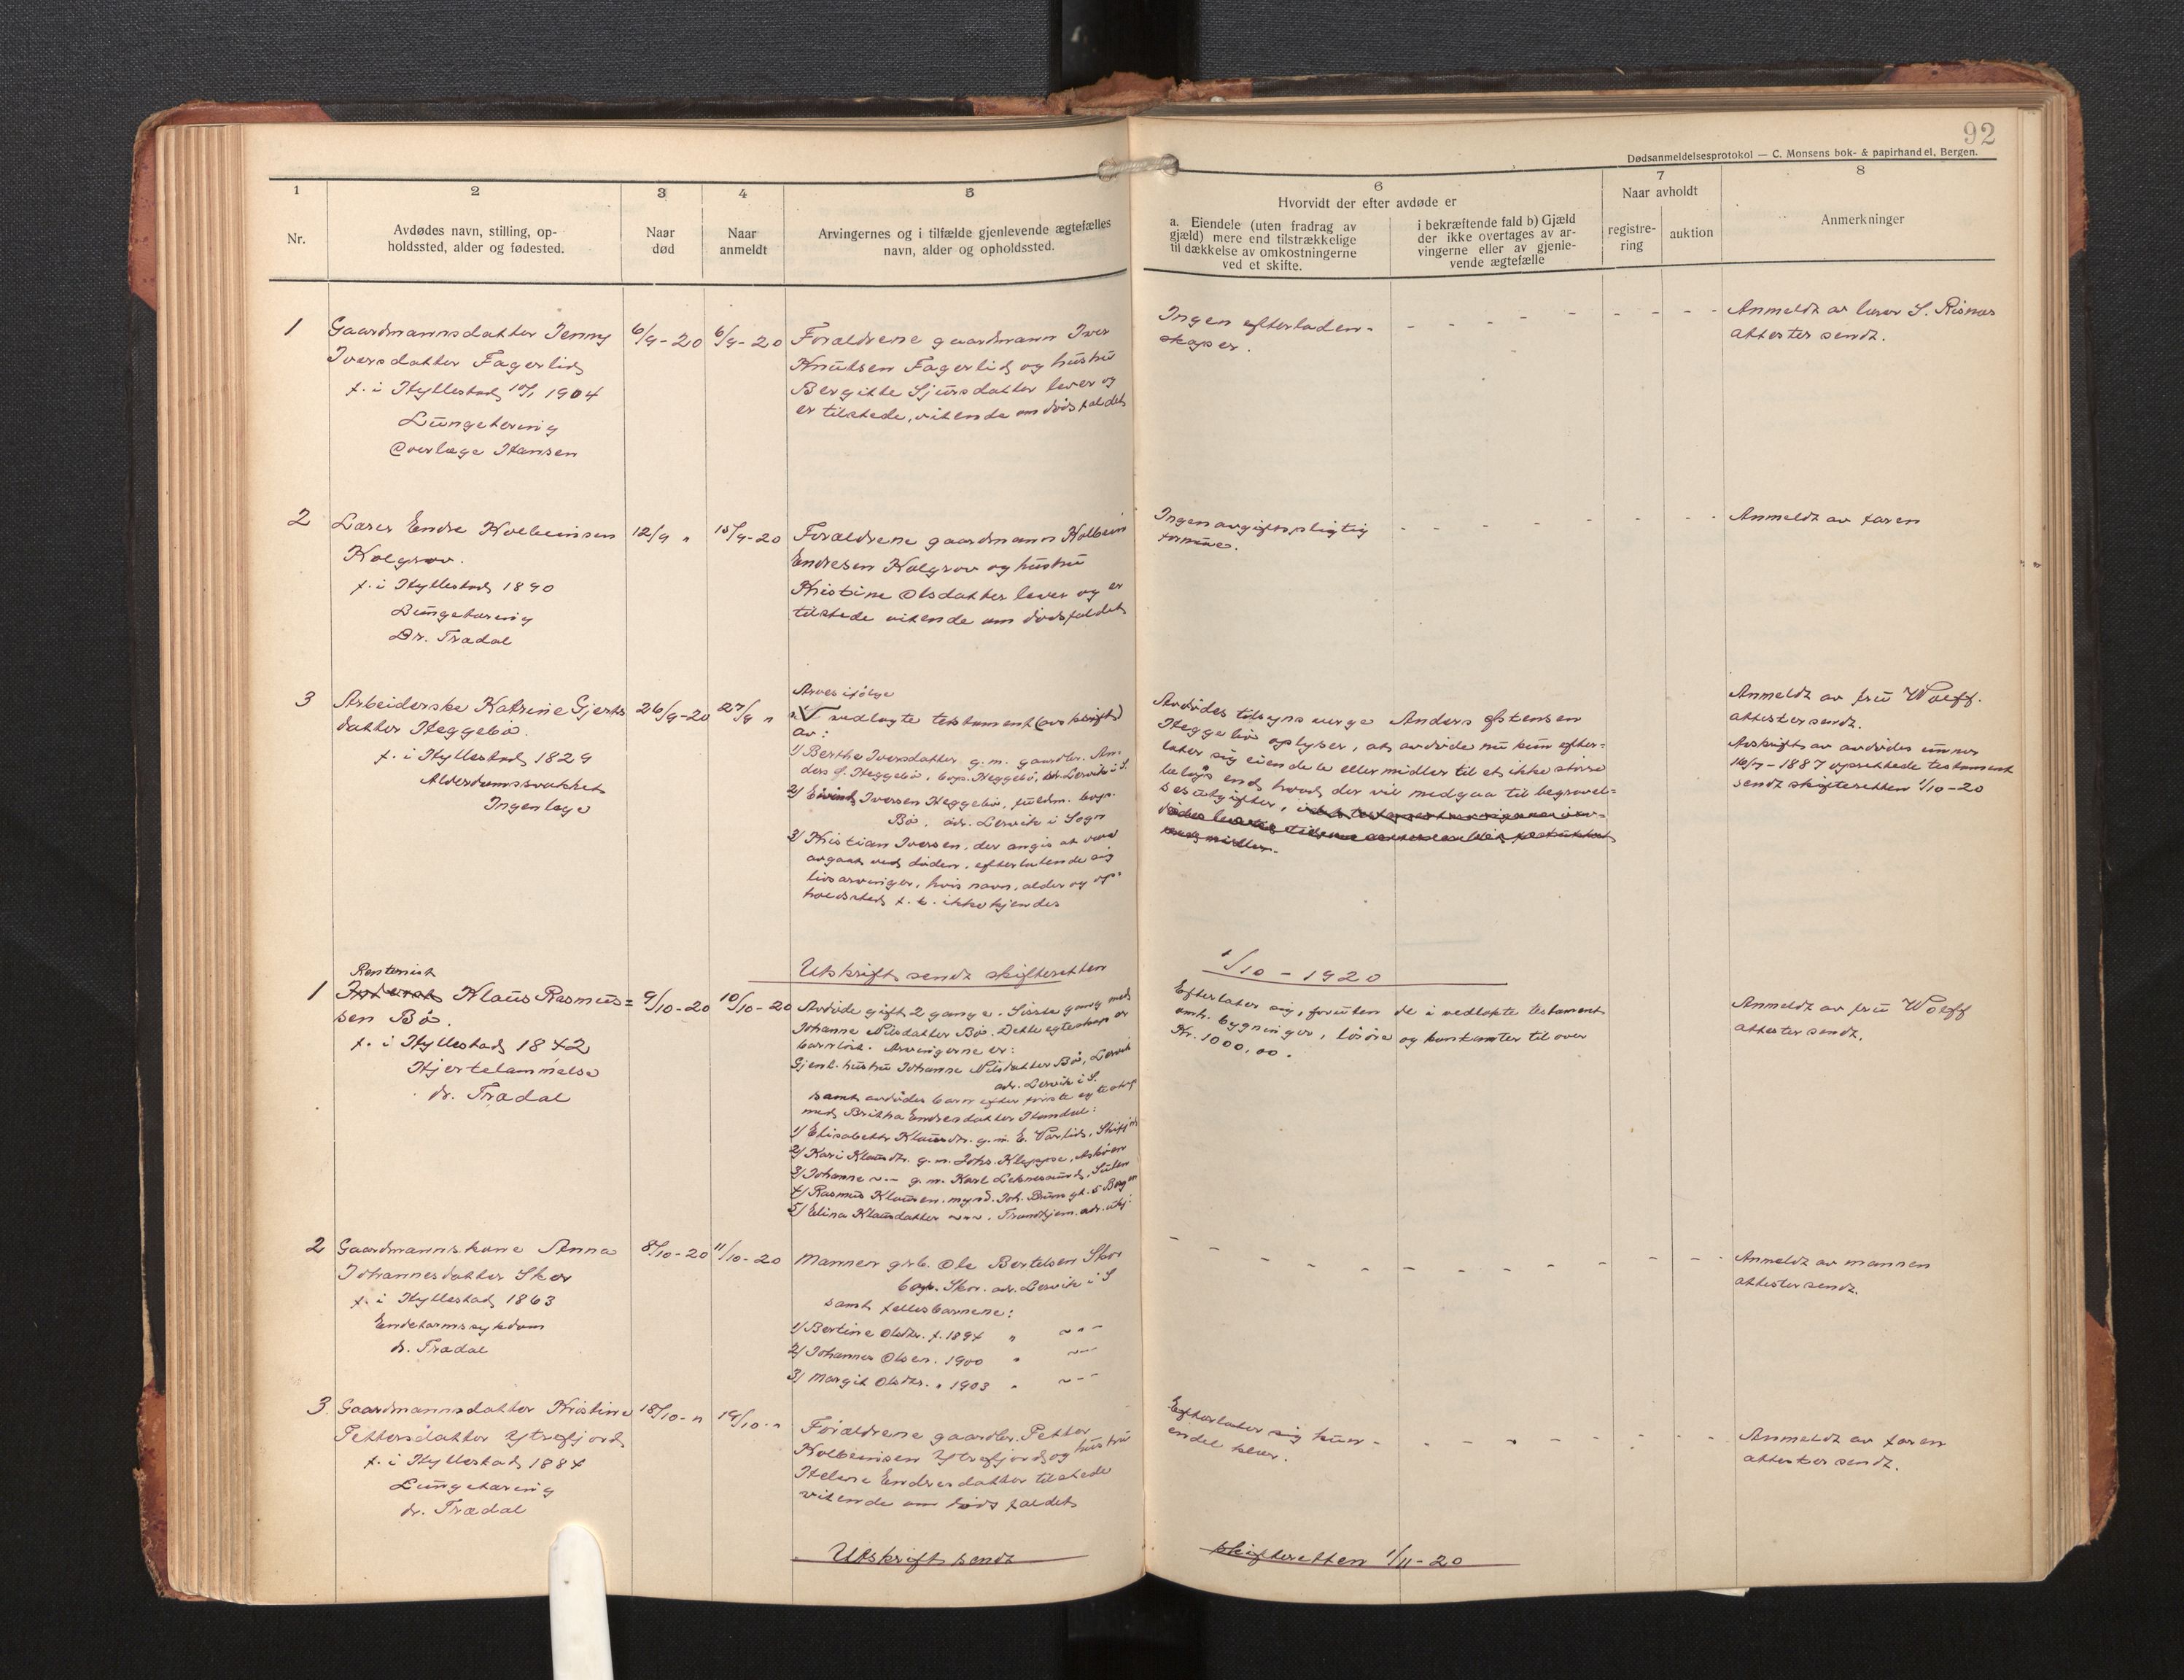 92
Dødsanmeldelsesprotokol — C. Monsens bok- & papirhandel, Bergen.
1
2
3
4
5
6
7
8
Nr.
Avdødes navn, stilling, op-
holdssted, alder og fødested.
Naar
død
Naar
anmeldt
Arvingernes og i tilfælde gjenlevende ægtefælles
navn, alder og opholdssted.
Hvorvidt der efter avdøde er
a. Eiendele (uten fradrag av
gjæld) mere end tilstrækkelige
til dækkelse av omkostningerne
ved et skifte.
i bekræftende fald b) Gjæld
der ikke overtages av ar-
vingerne eller av gjenle-
vende ægtefælle
Naar avholdt
registre-
ring
auktion
Anmerkninger
1
Gaardmannsdatter Jenny
Iversdatter Fagerlid
f. i Hyllestad 1904
Lungetæring
Overlæge Hansen
6/9-20
6/9-20
Forældrene gaardmann Iver
Knutsen Fagerlid og hustru
Bergitte Sjursdatter lever og
er tilstede, vitende om dødsfaldet
Ingen efterladen-
skaper.
Anmeldt av lærer S. Risnes
attester sendt.
2
Lærer Endre Kolbeinsen
Kolgrov.
f. i Hyllestad 1890
Lungetæring
Dr. Trædal
12/9 "
15/9-20
Forældrene gaardmann Kolbein
Endresen Kolgrov og hustru
Kristine Olsdatter lever og er
tilstede vitende om dødsfaldet
Ingen avgiftspligtig
formue.
Anmeldt av faren
3
Arbeiderske Katrine Gjerts
datter Heggebø.
f. i Hyllestad 1829
Alderdomssvakhet
Ingen læge
26/9-20
27/9 "
Arves ifølge
vedlagte testament (avskrift)
av:
1) Berthe Iversdatter g. m. gaardbr. An-
ders Ø. Heggebø, bop. Heggebø, adr. Leirvik i S.
2) Eivind Iversen Heggebø, bop.
Bø. adr. Leirvik i Sogn
3) Kristian Iversen, der angis at være
avgaat ved døden, efterlatende sig
livsarvinger, hvis navn, alder og op-
holdssted f. t. ikke kjendes
Avdødes tilsynsverge Anders Østensen
Heggebø oplyser, at avdøde nu kun efter-
later sig eiendele eller midler til et ikke større
beløp end hvad der vil medgaa til begravel-
sesutgifter,
Anmeldt av fru Wolff.
attester sendt.
Avskrift av avdødes under
16/7-1887 oprettede testament
sendt skifteretten 1/10-20
Utskrift sendt skifteretten
1/10-1920
1
Rentenist
Klaus Rasmus=
sen Bø.
f. i Hyllestad 1842
Hjertelammelse
dr. Trædal
9/10-20
10/10-20
Avdøde gift 2 gange. Sidste gang med
Johanne Nilsdatter Bø. Dette egteskap er
barnløst. Arvingerne er:
Gjenl. hustru Johanne Nilsdatter Bø, Leirvik
adr. Leirvik i S.
samt avdødes barn efter første egteskap
med Britha Endresdatter Hamdal:
1) Elisabeth Klausdtr. g. m. E. Varlid,
2) Kari Klausdtr. g. m. Johs. Kleppe, Askøen
3) Johanne —"— g. m. Karl Leknessund, Sulen
4) Rasmus Klausen, mynd. Joh. Bruns gt. 5 Bergen
5) Elina Klausdatter —"— . Trondhjem. adr. ukj.
Efterlater sig, foruten de i vedlagte testament
omh. bygninger, løsøre og kontanter til over
Kr. 1000,00.
Anmeldt av fru Wolff
attester sendt.
2
Gaardmannskone Anna
Johannesdatter Skor
f. i Hyllestad 1863
Endetarmssykdom
dr. Trædal
8/10-20
11/10-20
Mannen grb. Ole Bertelsen Skor
bop. Skor. adr. Leirvik i S
samt fellesbarnene:
1) Bertine Olsdtr. f. 1894 " —"—
2) Johannes Olsen. 1900 " —"—
3) Margit Olsdtr. " 1903 " —"—
Anmeldt av mannen
attester sendt.
3
Gaardmannsdatter Kristine
Pettersdatter Ytrefjord
f. i Hyllestad 1884
Lungetæring
dr. Trædal
18/10-"
19/10-"
Forældrene gaardbr. Petter
Kolbeinsen Ytrefjord og hustru
Helene Endresdatter tilstede
vitende om dødsfaldet
Efterlater sig kun
endel klær.
Anmeldt av faren
attester sendt.
Utskrift sendt
skifteretten 1/11-20